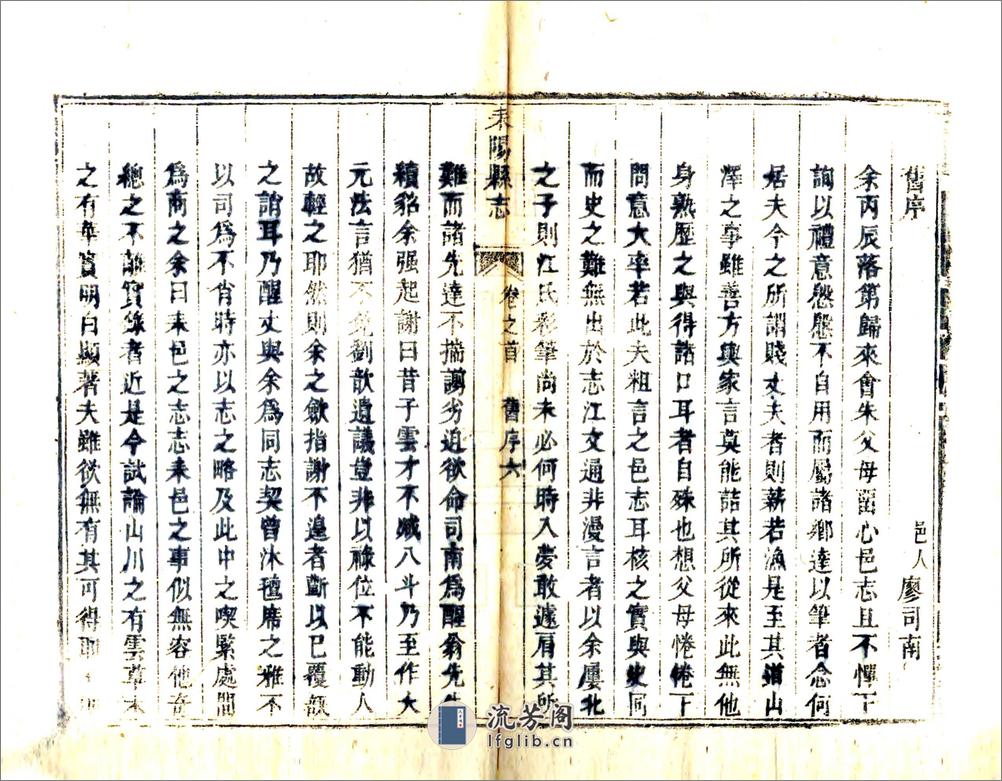 舊序
邑人廖司南
余丙辰落第歸來會朱父母留心邑志且不憚下
詢以禮意慇慇不自用而屬諸鄉達以筆者念何
居夫今之所謂賤丈夫者則薪若漁是至其道山
澤之事雖善方輿家言莫能詰其所從來此無他
身熟歷之與得諸口耳者自殊也想父母惓惓下
問意大率若此夫粗言之邑志耳核之實與史同
而史之難無出於志江文通非漫言者以余屢北
之子則江氏彩筆尚未必何時入夢敢遽肩其所
耒陽縣志
卷之首 舊序 六
難而諸先達不揣謭劣迫欲命司南為醒翁先生
續貂余强起謝曰昔子雲才不減八斗乃至作大
元法言猶不免劉歆遺議豈非以祿位不能動人
故輕之耶然則余之斂指謝不遑者斷以已覆瓿
之誚耳乃醒丈與余為同志契曾沐氊席之雅不
以司為不肖時亦以志之略及此中之喫緊處間
為商之余曰耒邑之志志耒邑之事似無容他奇
總之不離實錄者近是今試論山川之有雲草木
之有華實明白顯著夫雖欲無有其可得耶
流芳阁
lfglib.cn